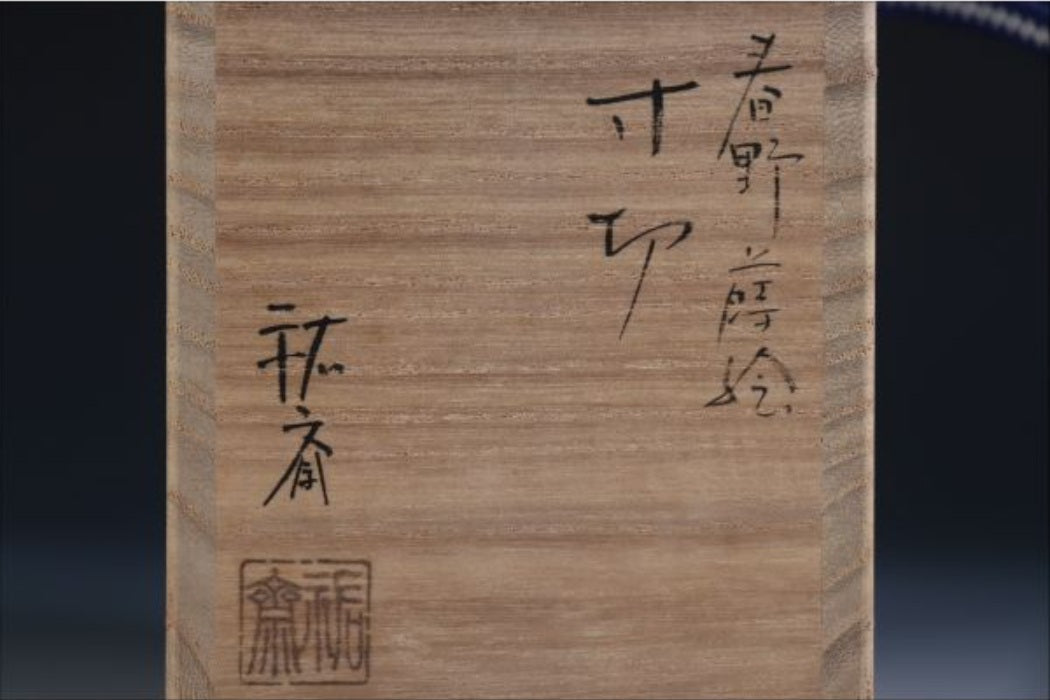 春野蒔絵
寸切
祐斎
祐齋